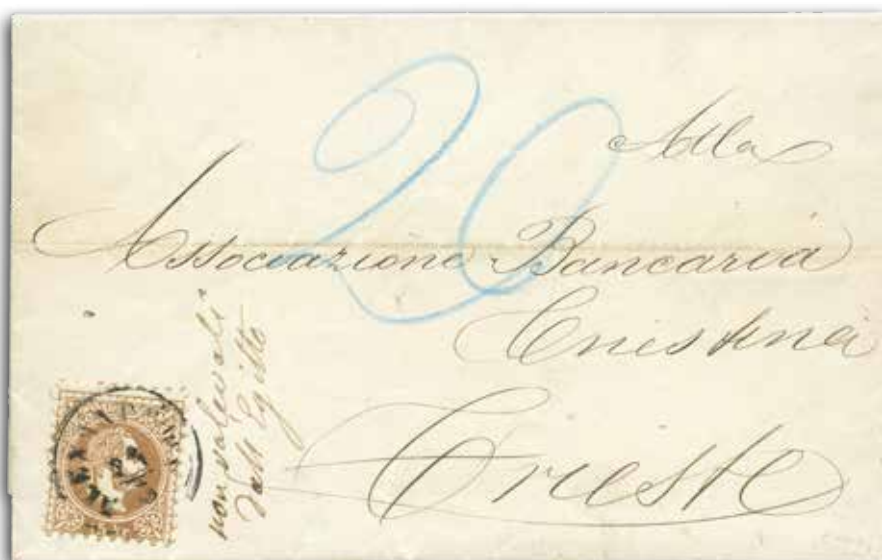 20
Alla
Associazione Bancaria
Triestina
Trieste
non valevoli
dall'Egitto